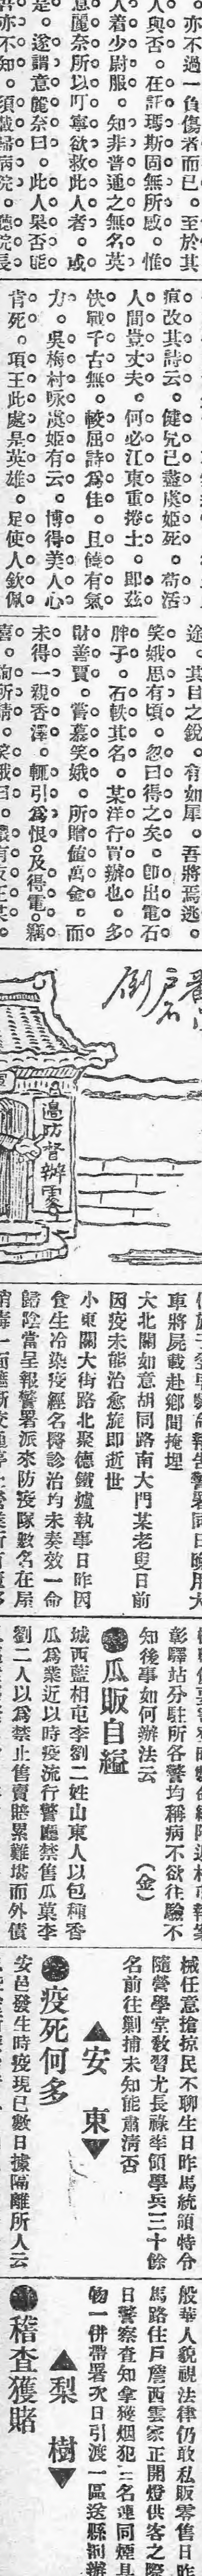 亦不過一負傷者而已。至於其
人與否。在訐瑪斯固無所感。惟
人着少尉服。知非普通之無名英
意麗奈所以叮寧欲救此人者。或
是。遂謂意麗奈曰。此人果否能
吾亦不知。須載歸病院。聽院長
痕改其詩云。健兒已盡虞姬死。苟活
人間豈丈夫。何必江東重捲土。即茲
快戰千古無。較屈詩為佳。且饒有氣
力。吳梅村咏虞姬有云。博得美人心
肯死。項王此處是英雄。足使人欽佩
途。其目之銳。有如犀。吾將焉逃。
笑娥思有頃。忽曰得之矣。卽出電石
胖子。石軼其名。某洋行買辦也。多
財善賈。嘗慕笑娥。所贈値萬金。而
未得一親香澤。輒引爲恨。及得電。竊
喜。詢所請。笑娥曰。
邊防督辦署
車將屍載赴鄉間掩埋
大北關如意胡同路南大門某老叟日前
因疫未能治愈旋即逝世
小東關大街路北聚德鐵爐執事日昨因
食生冷染疫經名醫診治均未奏效一命
歸陰當呈報警署派來防疫隊數名在屋
彰驛站分駐所各警均稱病不欲往驗不
知後事如何辦法云　（金）
●瓜販自縊
城西藍相屯李劉二姓山東人以包種香
瓜爲業近以時疫流行警廳禁售瓜菓李
劉二人以爲禁止售賣賠累難堪而外債
械任意搶掠民不聊生日昨馬統領特令
隨營學堂敎習尤長祿率領學兵三十餘
名前往剿捕未知能肅淸否
▲安　東▼
●疫死何多
安邑發生時疫現已數日據隔離所人云
般華人貌視法律仍敢私販零售日昨
馬路住戶詹西雲家正開燈供客之際
日警察査知拿獲烟犯三名連同煙具
物一併帶署次日引渡一區送縣訊辦
▲梨　樹▼
●稽査獲賭